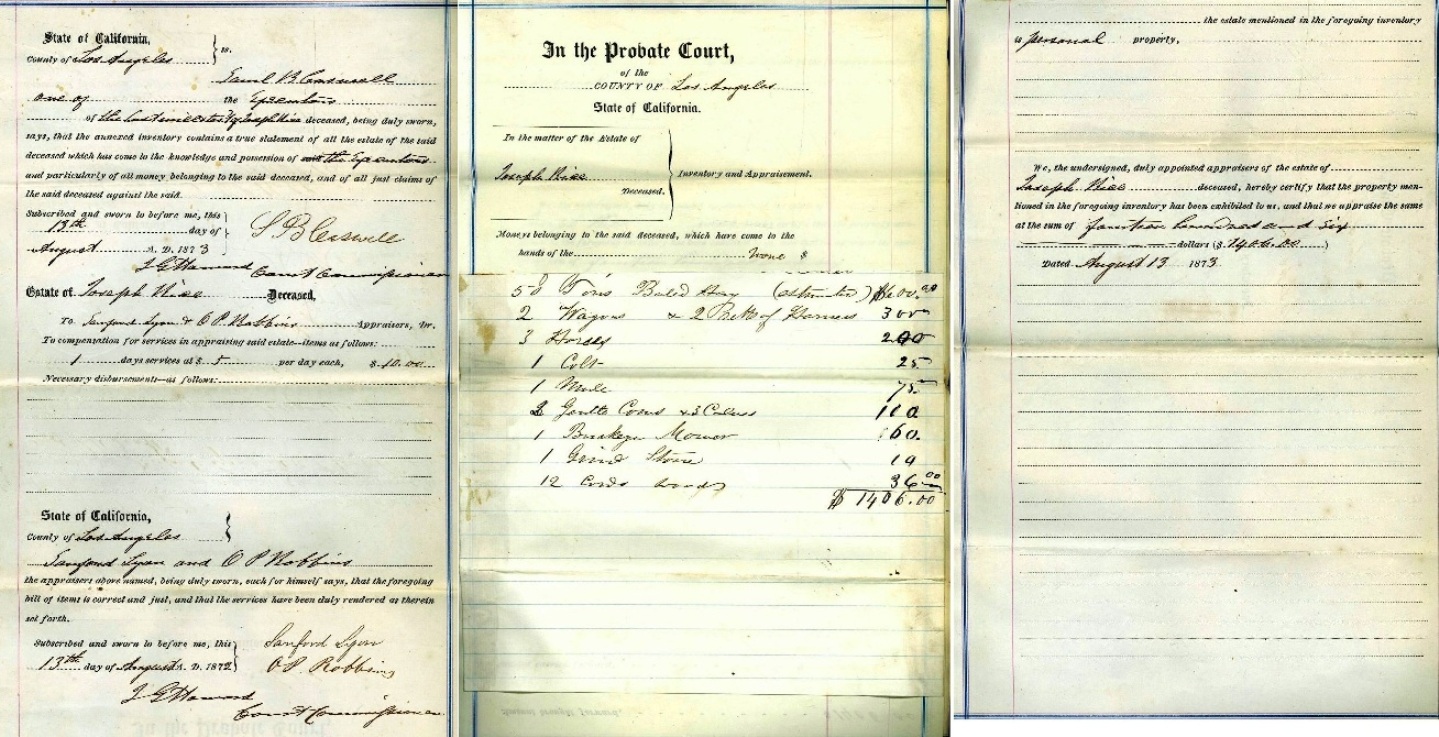 State of California,
County of Los Angeles } ss.
Saml B Caswell
one of the Executors
of the Last will & test of Joseph Rice deceased, being duly sworn,
says, that the annexed inventory contains a true statement of all the estate of the said
deceased which has come to the knowledge and possession of said the Executors
and particularly of all money belonging to the said deceased, and of all just claims of
the said deceased against the said
Subscribed and sworn to before me, this
13th day of
August A. D. 1873
S B Caswell
J G Howard Court Commissioner
Estate of Joseph Rice Deceased,
To Sanford Lyon & O P Robbins Appraisers, Dr.
To compensation for services in appraising said estate—items as follows:
1 days services at $ 5 per day each, $ 10.00
Necessary disbursements—as follows:
State of California,
County of Los Angeles }
Sanford Lyon and O P Robbins
the appraisers above named, being duly sworn, each for himself says, that the foregoing
bill of items is correct and just, and that the services have been duly rendered as therein
set forth.
Subscribed and sworn to before me, this
13th day of August A. D. 1873
Sanford Lyon
O.P. Robbins
J G Howard
Court Commissioner
In the Probate Court,
of the
COUNTY OF Los Angeles
State of California.
In the matter of the Estate of
Joseph Rice
Deceased.
Inventory and Appraisement.
Moneys belonging to the said deceased, which have come to the
hands of the None $
50 Tons Baled Hay (estimated) $600.00
2 Wagons & 2 Setts of Harness 300
3 Horses 200
1 Colt 25
1 Mule 75
2 Gentle Cows & 3 Calves 100
1 Buckeye Mower 60.
1 Grind Stone 10
12 Cords wood 36.00
$ 1406.00
the estate mentioned in the foregoing inventory
is personal property.
We, the undersigned, duly appointed appraisers of the estate of
Joseph Rice deceased, hereby certify that the property men-
tioned in the foregoing inventory has been exhibited to us, and that we appraise the same
at the sum of fourteen hundred and six
dollars ($ 1406.00 )
Dated August 13 1873.